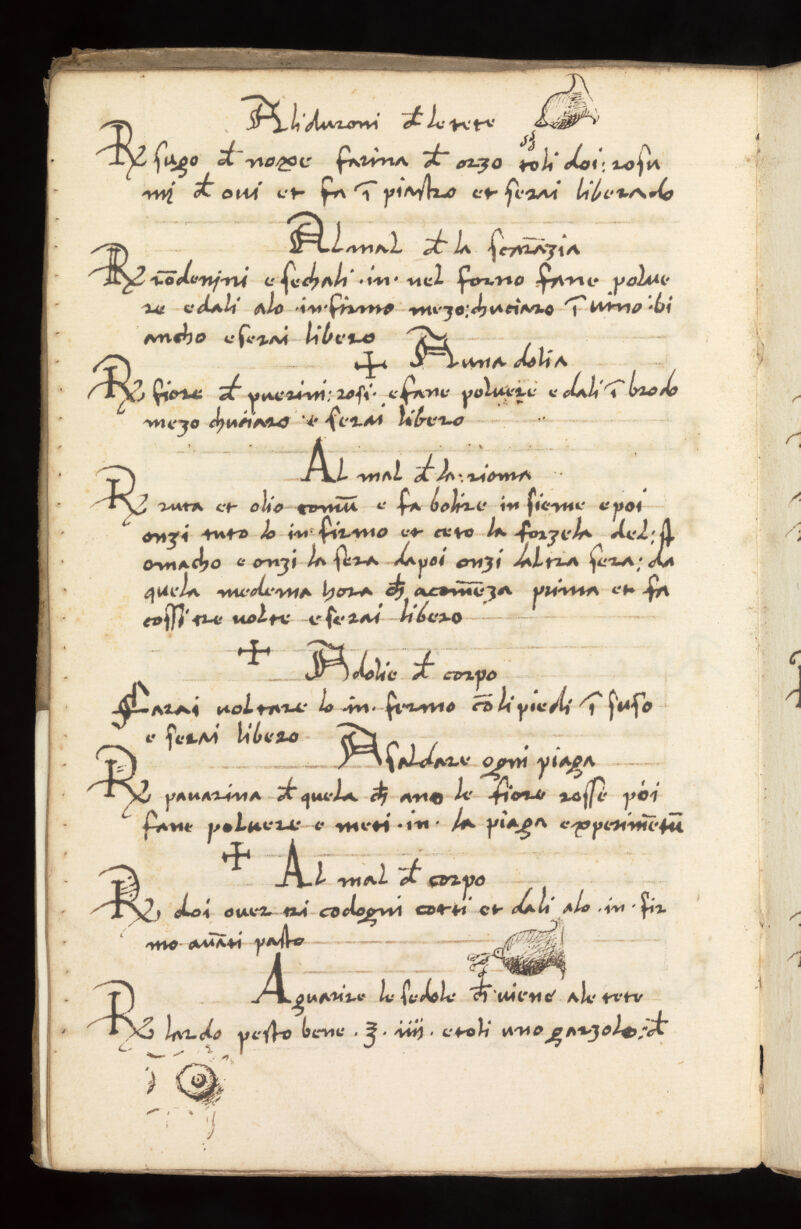 A li duroni đ le tete
℞ sugo đ noxe farina đ orzo toli doi: rosu
mi đ oui et fa ī piastro et serai liberado
Al mal đ la scarāzia
℞ rōdenini e sechali · in · uel forno fane polue
re e dali alo · in · firmo mezo: chuciaro ī uino · bi
ancho e serai libero
✠ A una dolia
℞ fiore đ puerini: rosi · e fane poluere e dali ī brodo
mezo chuciaro e serai libero
Al mal đ la: rioma
℞ ruta et olio comū e fa bolire in sieme e poi
onzi tuto lo in · firmo et ceto la forzela del: st
omacho e onzi la sera dapoi onzi laltra sera: da
quela medema hora ch acomēza prima et fa
cossi tre uolte e serai libero
✠ A dolie đ corpo
Farai uoltare lo · in · fermo cō li piedi ī suso
e serai libero
A saldare ogni piaga
℞ pauarina đ quela ch ano le fiore rosse poi
fane poluere e meti · in · la piaga experimētū
✠ Al mal đ corpo
℞ doi ouer tri codogni cotti et dali alo · in · fir
mo auāti pasto
A guarire le sedole ch uiene ale tete
℞ lardo pesto bene · ℥ · iiij · e toli uno garzolo: đ